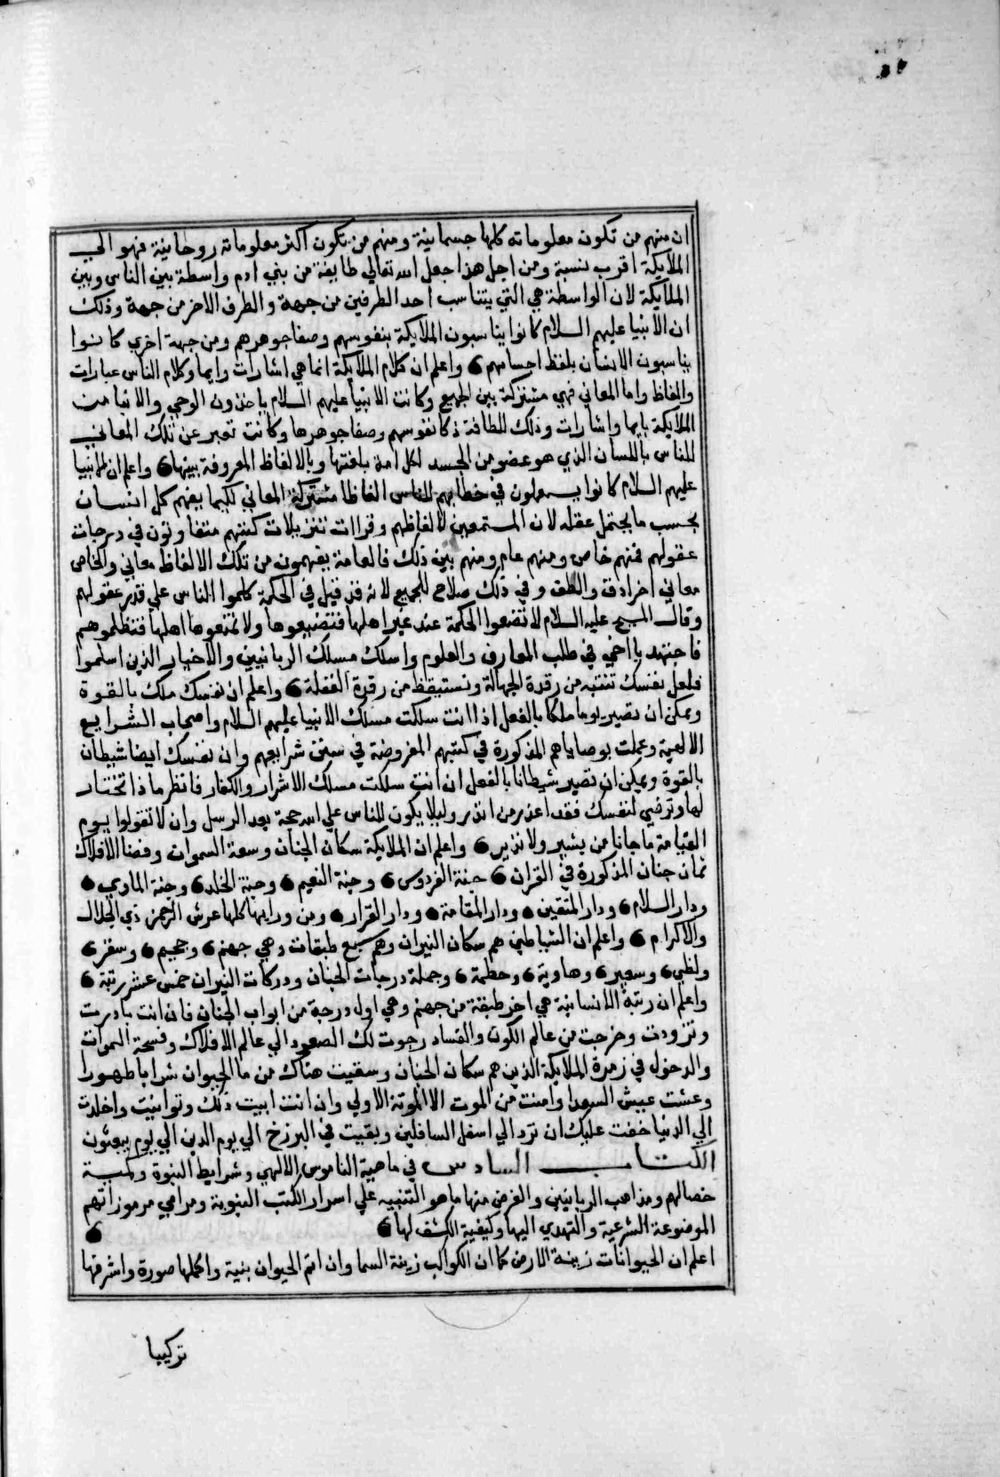 ان منهم من تكون معلوماته كلها جسمانية ومنهم من تكون اكثر معلوماته روحانية فهو الي
الملايكة اقرب نسبة ومن اجل هذا جعل الله تعالي طايفة من بني ادم واسطة بين الناس وبين
الملايكة لان الواسطة هي التي يتناسب احد الطرفين من جهة والطرف الاخر من جهة وذلك
ان الانبيا عليهم السلام كانوا يناسبون الملايكة بنفوسهم وصفا جوهرهم ومن جهة اخري كانوا
يناسبون الانسان بلغظ اجسامهم واعلم ان كلام الملايكة انما هي اشارات وايما وكلام الناس عبارات
والفاظ واما المعاني فهي مشتركة بين الجميع وكانت الانبيا عليهم السلام ياخذون الوحي والانبا من
الملايكة بايما واشارات وذلك للطافة ذكا نفوسهم وصفا جوهرها وكانت تعبر عن تلك المعاني
للناس باللسان الذي هو عضو من الجسد لكل امة بلغتها وبالالفاظ المعروفة بينها واعلم ان الانبيا
عليهم السلام كانوا يستعملون في خطابهم للناس الفاظا مشتركة المعاني لكيما يفهم كل انسان
بحسب ما يحتمل عقله لان المستمعين لالفاظهم وقراات تنزيلات كتبهم متفاوتون في درجات
عقولهم فمنهم خاص ومنهم عام ومنهم بين ذلك فالعامة يفهمون من تلك الالفاظ معاني والخاص
معاني اخر ادق والطف وفي ذلك صلاح للجميع لانه قد قيل في الحكمة كلموا الناس علي قدر عقولهم
وقال المسيح عليه السلام لا تضعوا الحكمة عند غير اهلها فتضيعوها ولا تمنعوها اهلها فتظلموهم
فاجتهد يا اخي في طلب المعارف والعلوم واسلك مسلك الربانيين والاخيار الذين اسلموا
فلعل نفسك تنتبه من رقدة الجهالة وتستيقظ من رقدة الغفلة واعلم ان نفسك ملك بالقوة
ويمكن ان تصير يوما ملكا بالفعل اذا انت سلكت مسلك الانبيا عليهم السلام واصحاب الشرايع
الالهية وعملت بوصاياهم المذكورة في كتبهم المفروضة في سنن شرايعهم وان نفسك ايضا شيطان
بالقوة ويمكن ان تصير شيطانا بالفعل ان انت سلكت مسلك الاشرار والكفار فانظر ماذا تختار
لها وترضي لنفسك فقد اعذر من انذر وليلا يكون للناس علي الله حجة بعد الرسل وان لا تقولوا يوم
القيامة ما جانا من بشير ولا نذير واعلم ان الملايكة سكان الجنان وسعة السموات وفضا الافلاك
ثمان جنان المذكورة في القران جنة الفردوس وجنة النعيم وجنة الخلد وجنة الماوي
ودار السلام ودار المتقين ودار المقامة ودار القرار ومن ورايها كلها عرش الرحمن ذي الجلال
والاكرام واعلم ان الشياطين هم سكان النيران وهم سبع طبقات وهي جهنم وجحيم وسقر
ولظي وسعير وهاوية وحطمة وجملة درجات الجنان ودركات النيران خمس عشر رتبة
واعلم ان رتبة الانسانية هي اخر طبقة من جهنم وهي اول درجة من ابواب الجنان فان انت بادرت
وتزودت وخرجت من عالم الكون والفساد رجوت لك الصعود الي عالم الافلاك وفسحة السموات
والدخول في زمرة الملايكة الذين هم سكان الجنان وسقيت هناك من ما الحيوان شرابا طهورا
وعشت عيش السعدا وامنت من الموت الا الموتة الاولي وان انت ابيت ذلك وتوانيت واخلدت
الي الدنيا خفت عليك ان ترد الي اسفل السافلين وبقيت في البرزخ الي يوم الدين الي يوم يبعثون
الكتاب السادس في ماهية الناموس الالهي وشرايط النبوة وكمية
خصالهم ومذاهب الربانيين والغرض منها ما هو التنبيه علي اسرار الكتب النبوية ومرامي مرموزاتهم
الموضوعة الشرعية والتهدي اليها وكيفية الكشف لها
اعلم ان الحيوانات زينة الارض كما ان الكواكب زينة السما وان اتم الحيوان بنية واكملها صورة واشرفها
تركيبا